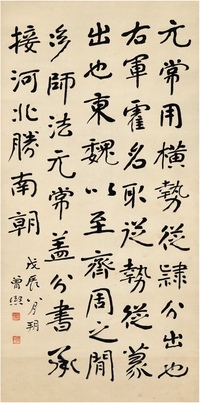 元常用橫勢從隸分出也
右軍霍名取從勢從篆
出也東魏以至齊周之間
多師法元常盖分書承
接河北勝南朝
戊辰八月朔
曾熙